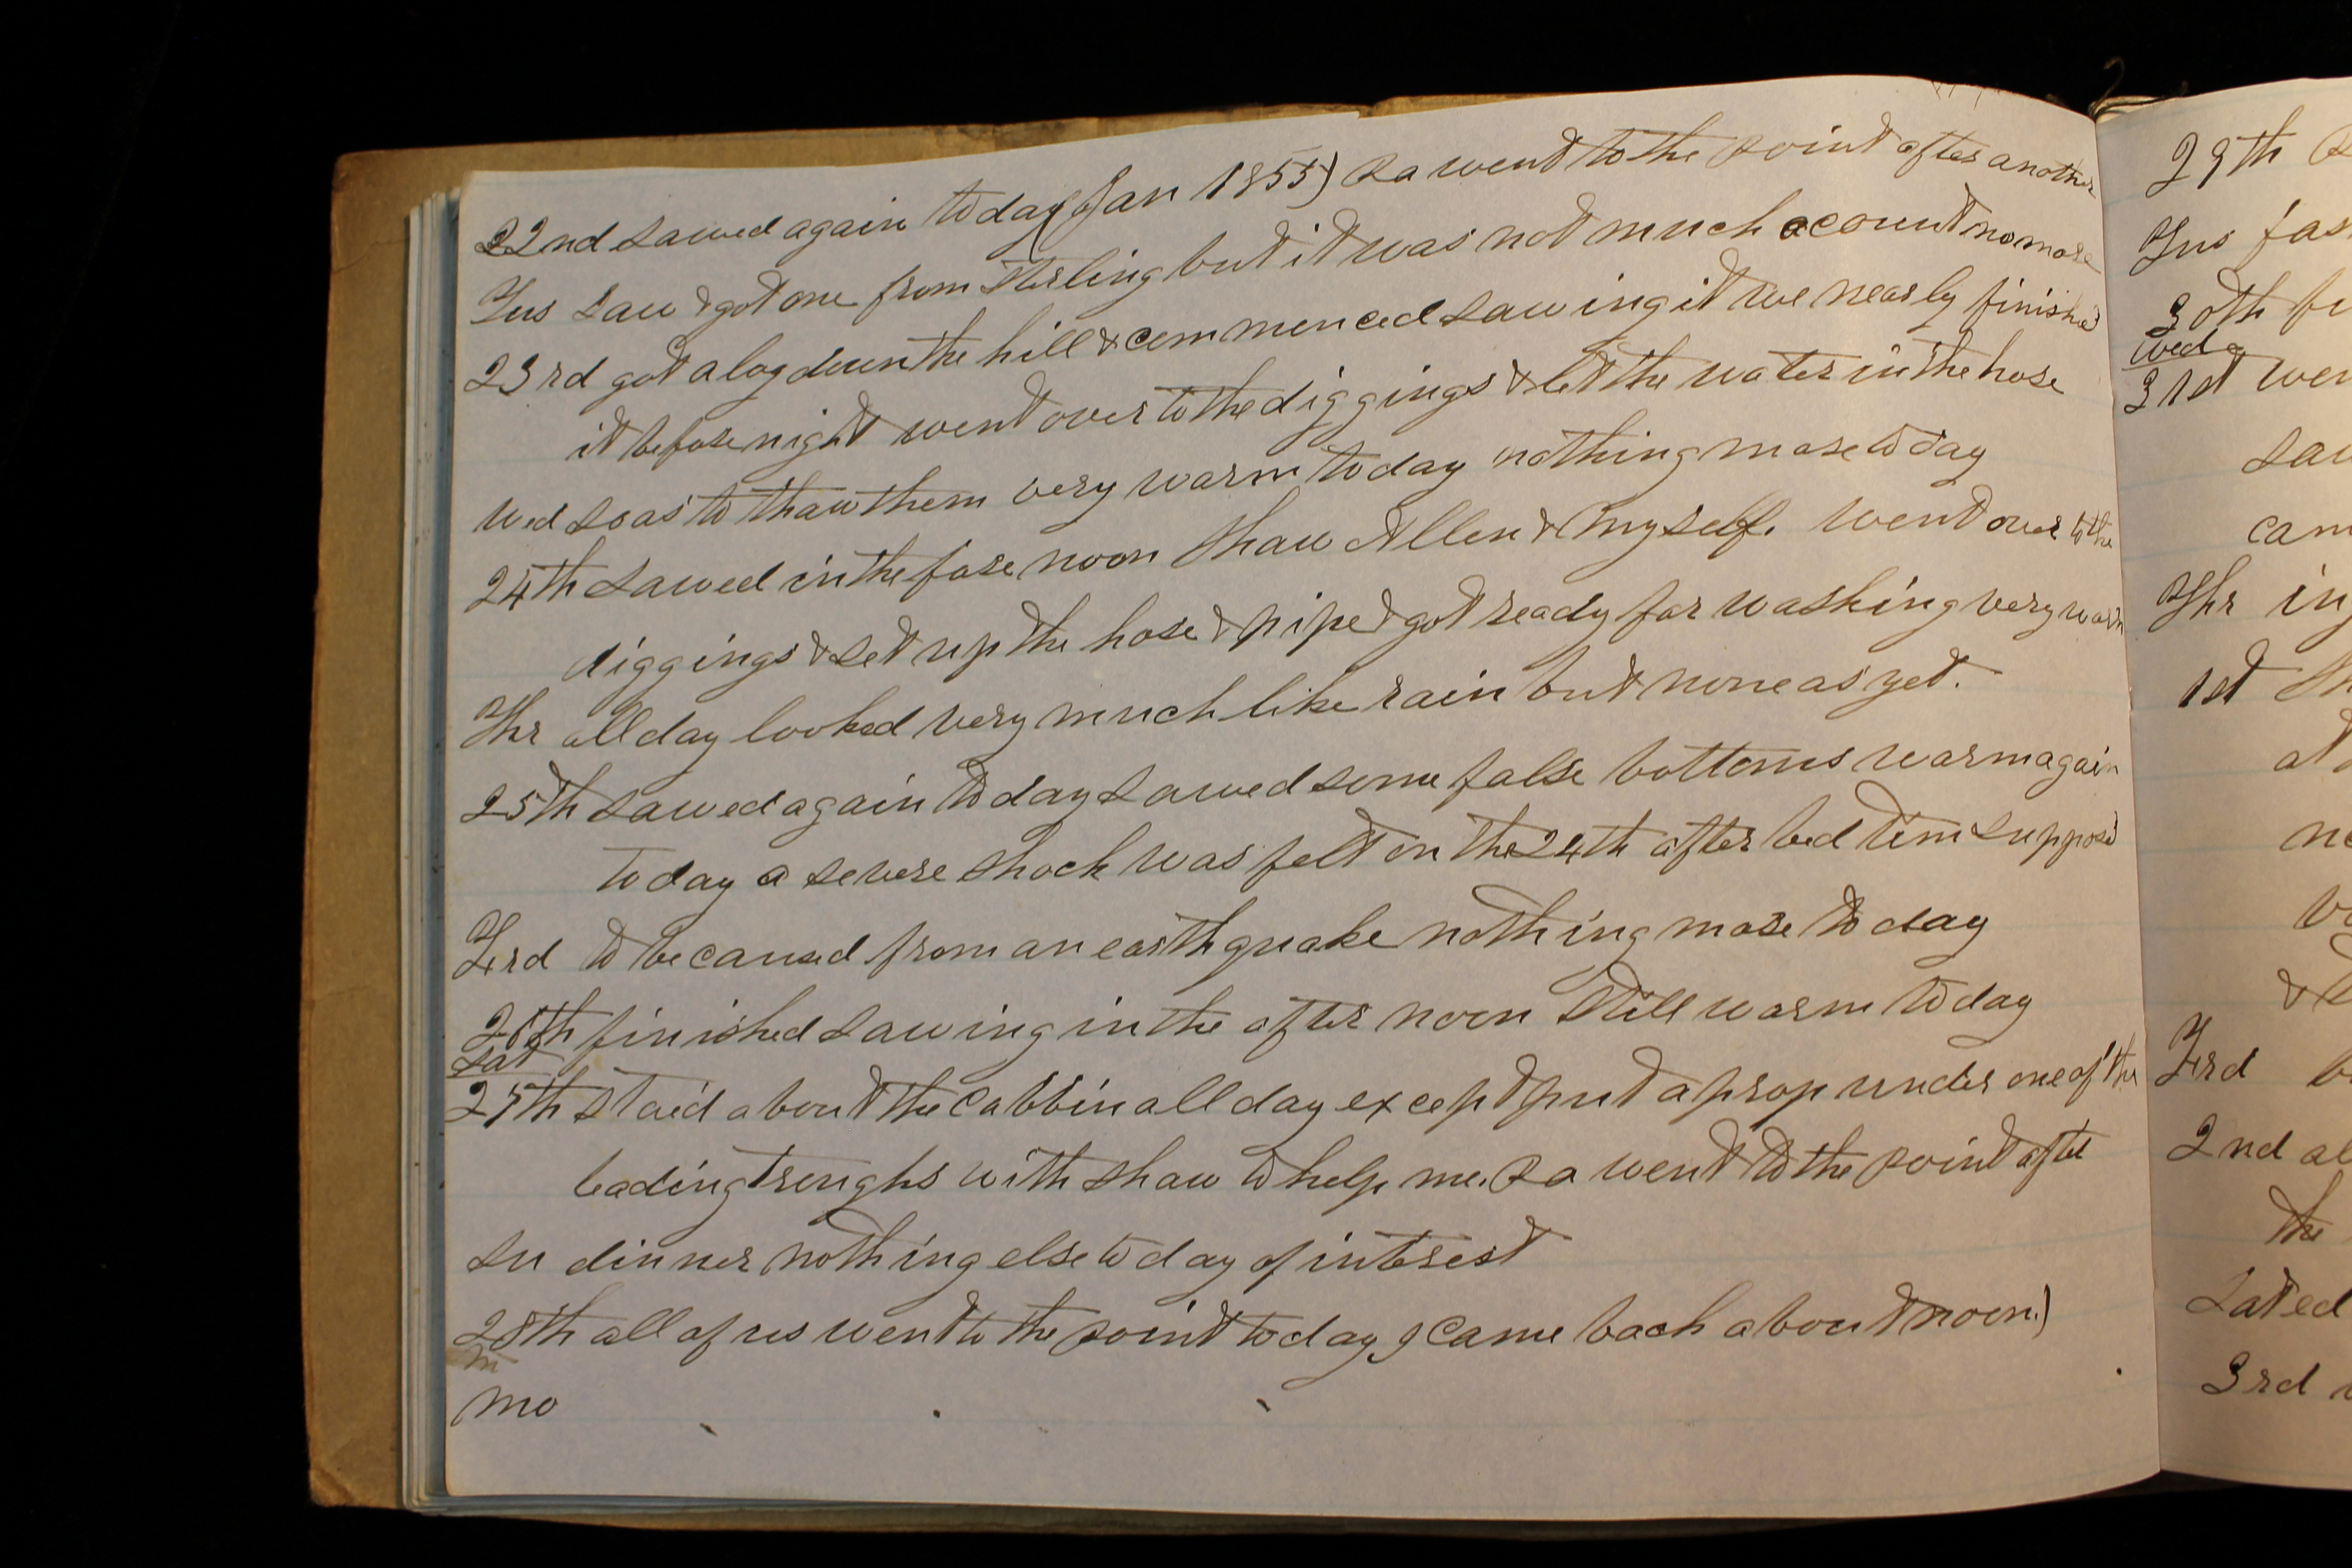 22nd sawed again today (Jan 1855) Pa went to the point after another
Tus saw & got one from Sterling but it was not much account no more
23rd got a log down the hill & commenced sawing it we nearly finished
it before night went over to the diggings & let the water in the hose
Wed so as to thaw them very warm today nothing more today
24th sawed in the fore noon Shaw Allen & myself. went over to the
diggings & set up the hose & pipe & got ready for washing very warm
Thr all day looked very much like rain but none as yet.
25th sawed again today sawed some false bottoms warm again
today a severe shock was felt on the 24th after bed tim supposd
Frd to be caused from an earthquake nothing more today
26th finished sawing in the after noon still warm today
Sat
27th staid about the cabbin all day except put a prop under one of the
leading troughs with Shaw to help me. Pa went to the point after
Su dinner nothing else today of interest
28th all of us went to the point today I came back about noon.)
m
Mo
29th
Tus fas
30th fi
Wed
31st wen
saw
cam
Thr in
1st
at
&
Frd
2nd al
the
Sat ed
3rd